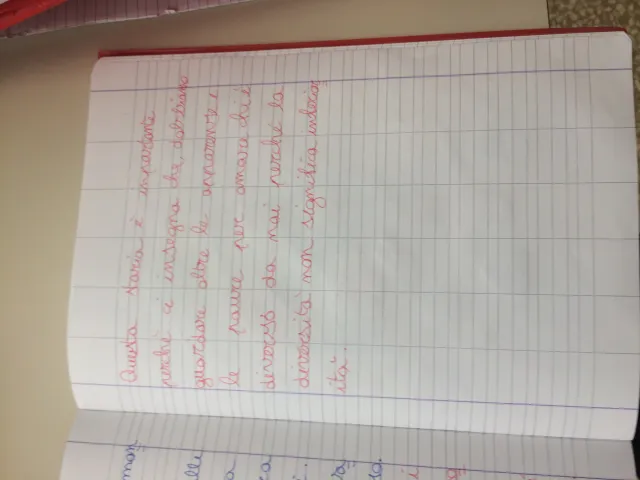 Questa storia è importante
perché ci insegna che dobbiamo
guardare oltre le apparenze e
le paure per amare chi è
diverso da noi perché la
diversità non significa inferior
ità.
man
elli
a
ca
.
va
do.
i